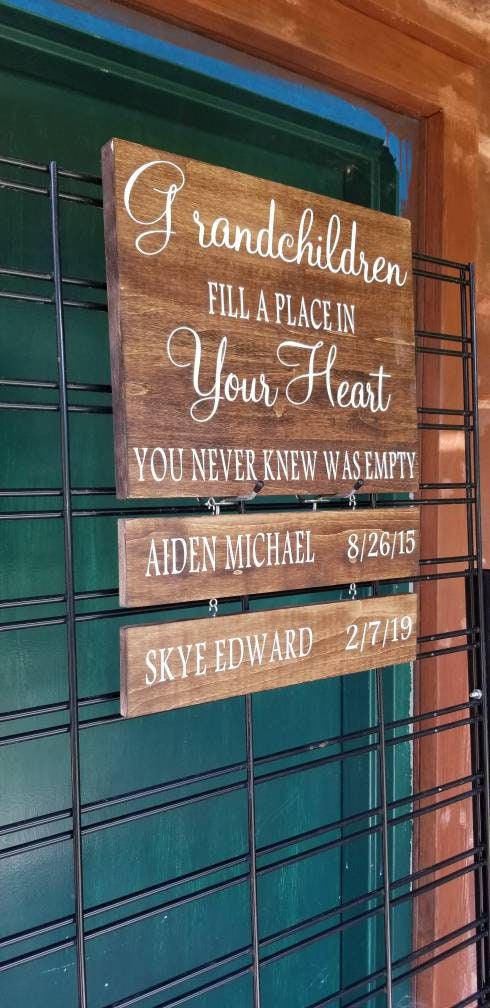 Grandchildren
FILL A PLACE IN
Your Heart
YOU NEVER KNEW WAS EMPTY
AIDEN MICHAEL 8/26/15
SKYE EDWARD 2/7/19